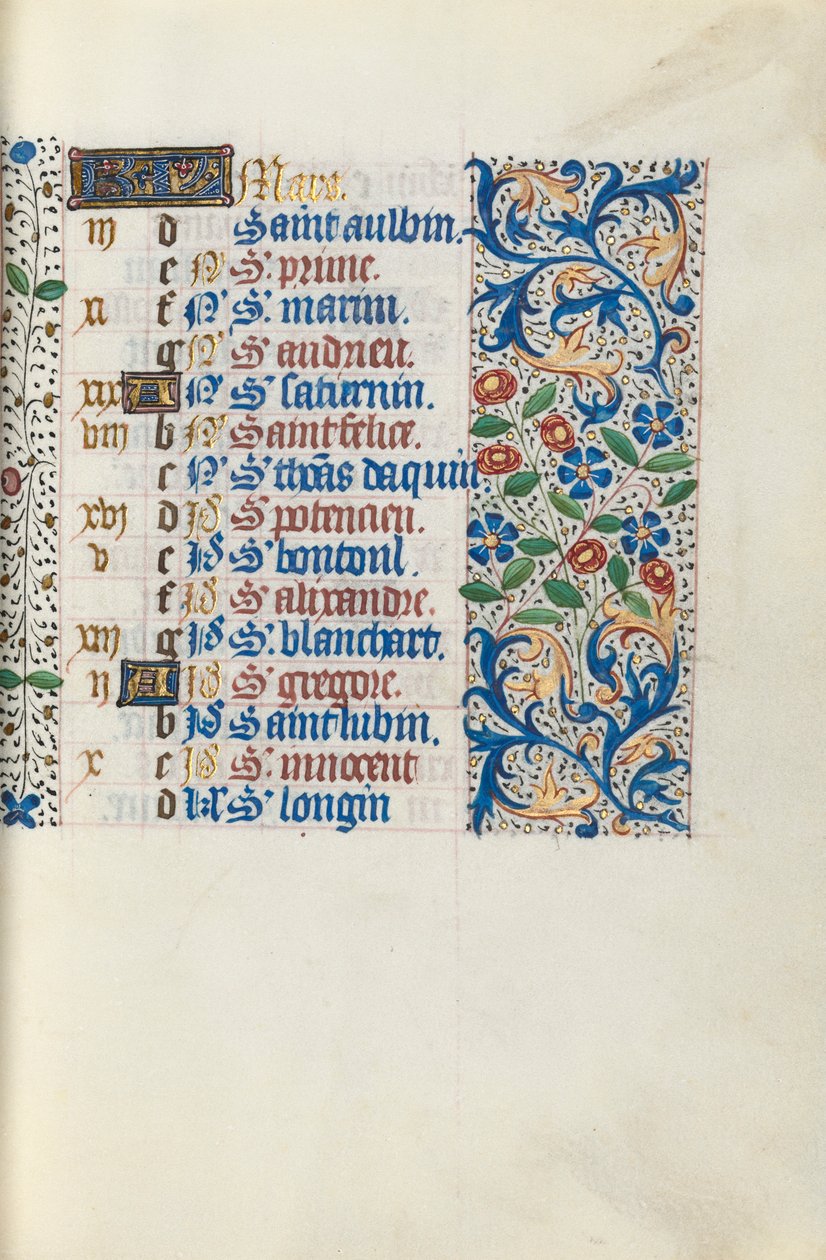 KL Mars.
iii d Saint aulbin.
e N S. prime.
xi f N S. marin.
g N S andrieu.
xix A N S saturnin.
viii b N Saint felice.
c N S thoãs daquin.
xvi d Id S potencieu.
v e Id S bontoul.
f Id S alixandre.
xiii g Id S. blanchart.
ii A Id S gregore.
b Id Saint lubin.
x c Id S. innocent
d kl S longin